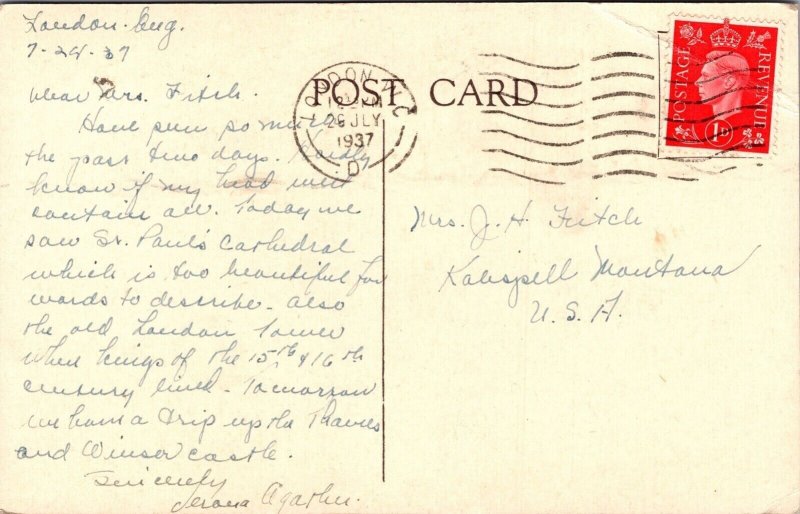 London. Eng.
7-28-37
Dear Mrs. Fitch.
Have seen so much
the pass two days. Hardly
know if my head will
contain all. Today we
saw St. Paul's Cathedral
which is too beautiful for
words to describe. Also
the old London Tower
when kings of the 15th & 16th
century lived. Tomorrow
we have a trip up the Thames
and Winser castle.
Sincerely
POST CARD
LONDON W.C.
28 JLY
1937
D
POSTAGE
REVENUE
1D
Mrs. J. H. Fitch
Kalispell Montana
U.S.A.